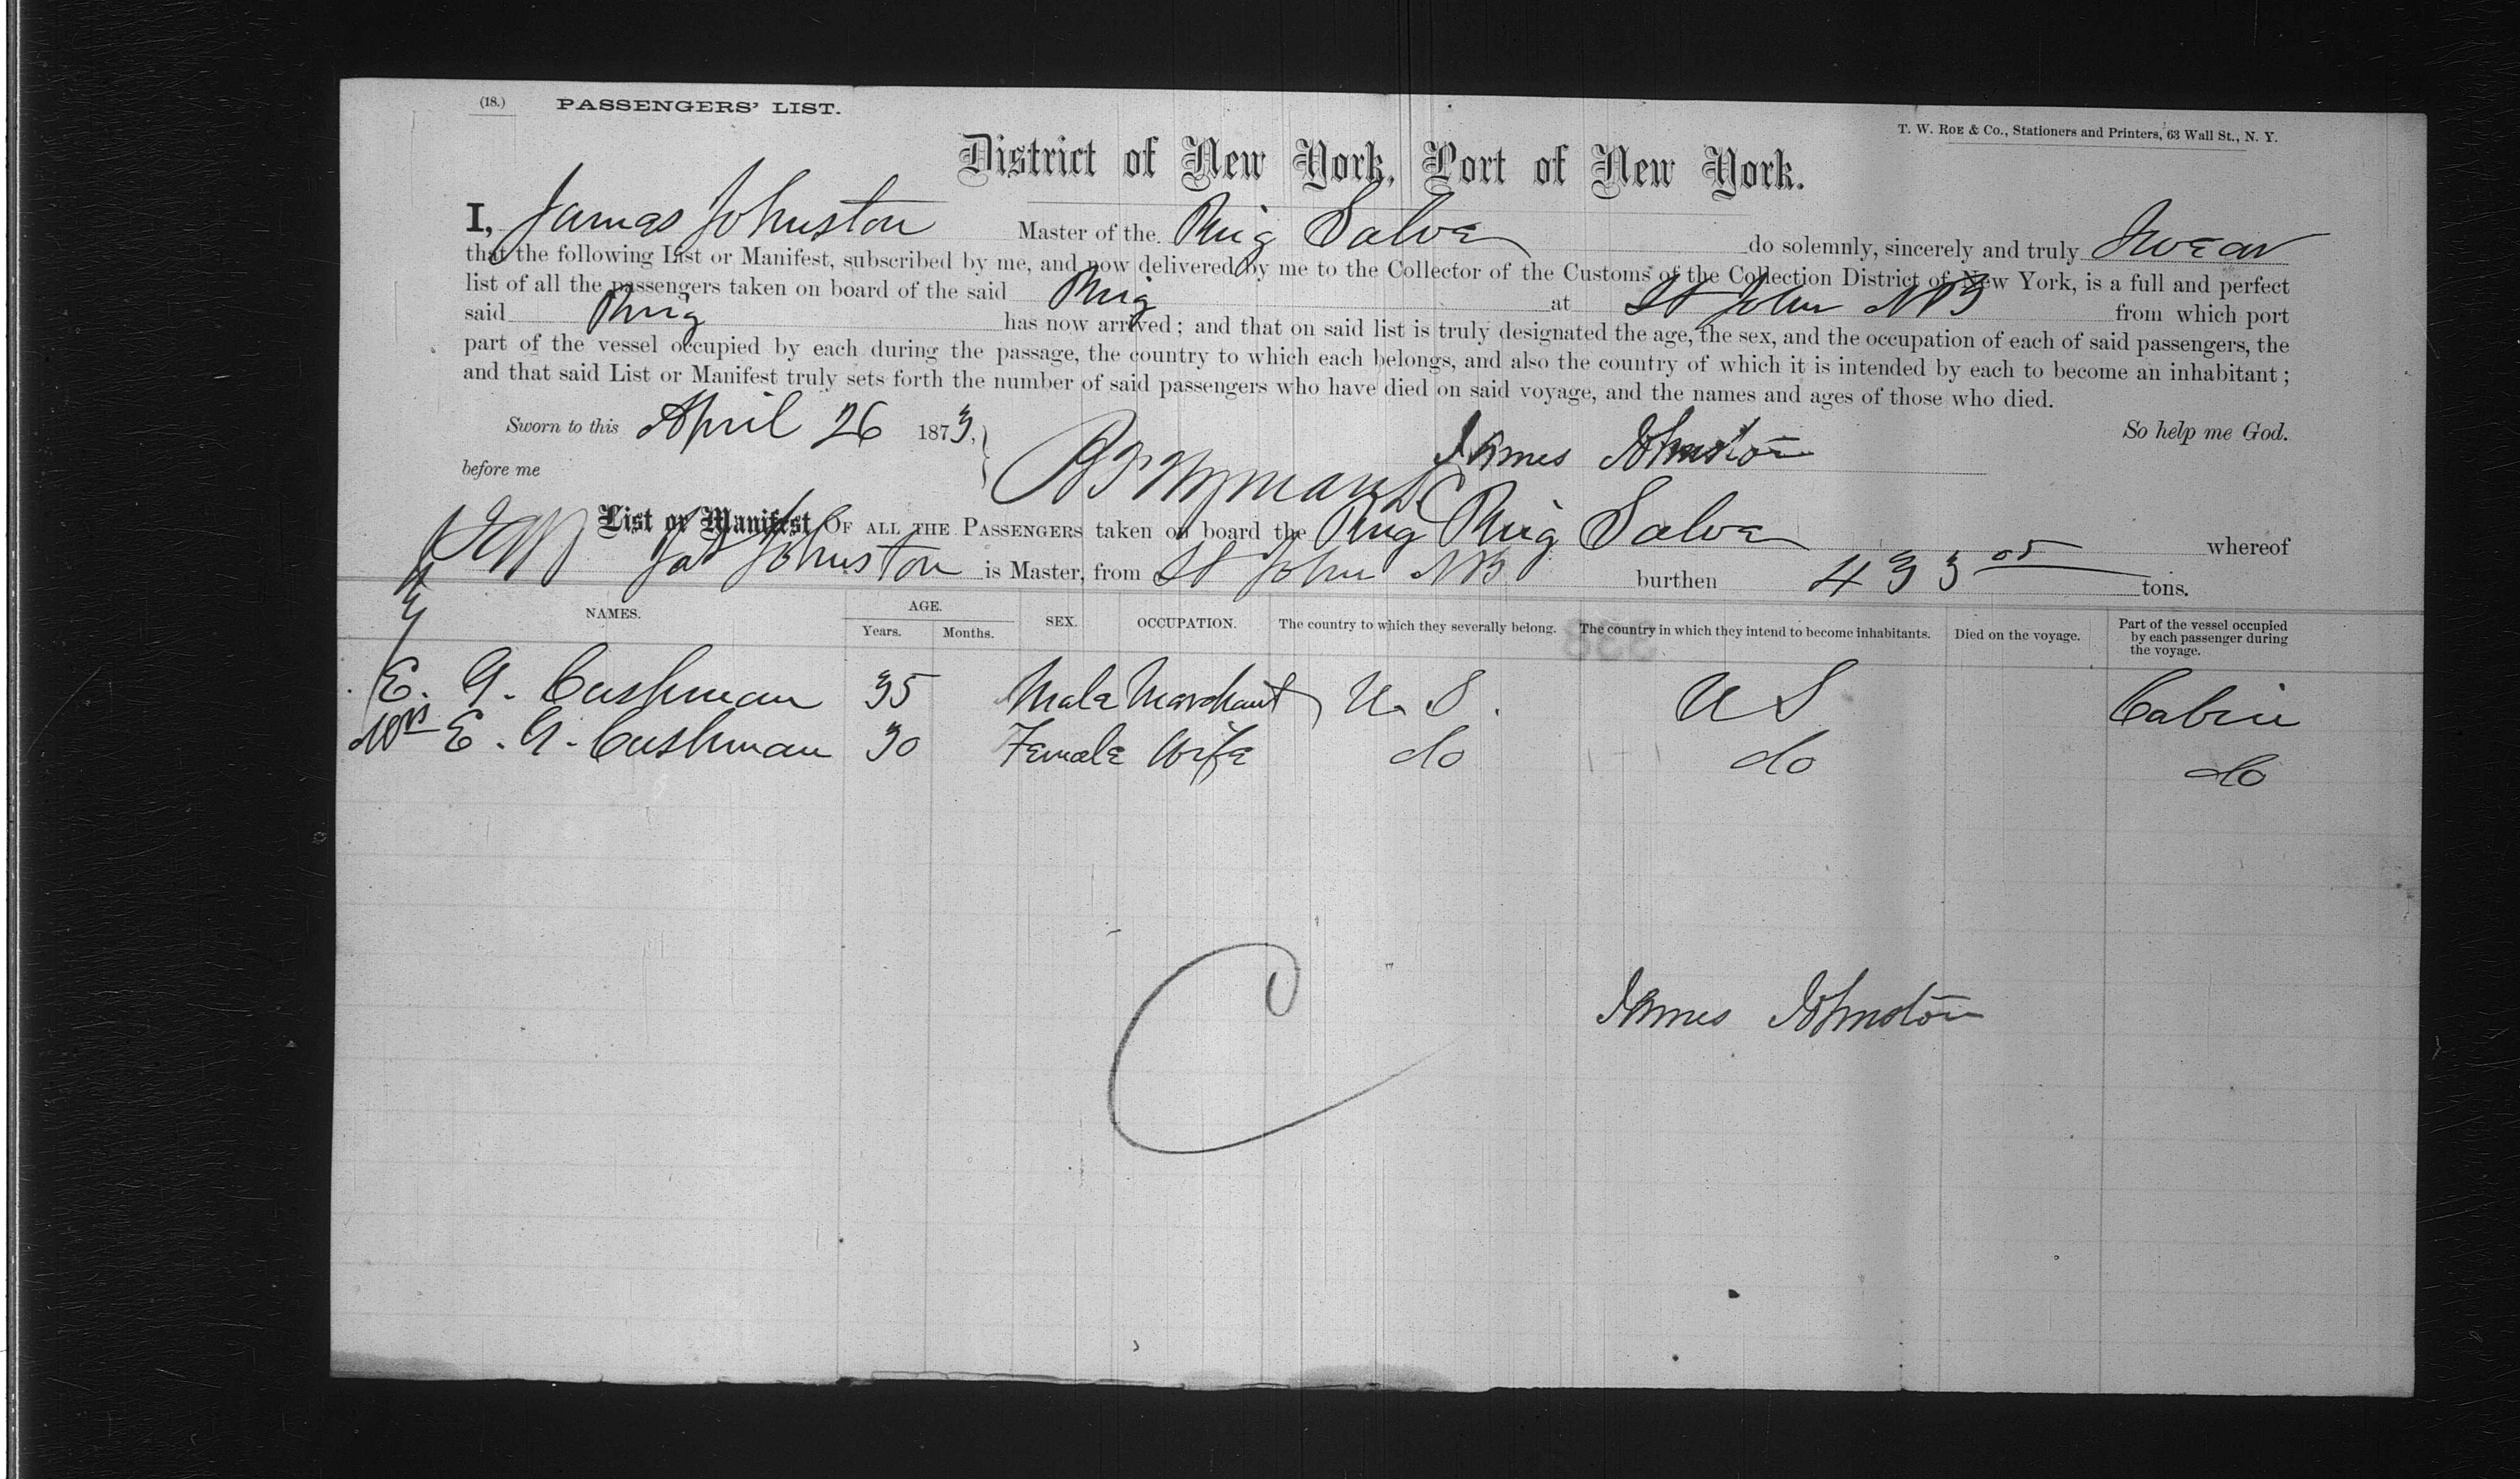 (18.) PASSENGERS' LIST.
T. W. ROE & Co., Stationers and Printers, 63 Wall St., N. Y.
District of New York, Port of New York.
I, James Johnston Master of the Brig Salva do solemnly, sincerely and truly Swear
that the following List or Manifest, subscribed by me, and now delivered by me to the Collector of the Customs of the Collection District of New York, is a full and perfect
list of all the passengers taken on board of the said Brig at St John NB from which port
said Brig has now arrived; and that on said list is truly designated the age, the sex, and the occupation of each of said passengers, the
part of the vessel occupied by each during the passage, the country to which each belongs, and also the country of which it is intended by each to become an inhabitant;
and that said List or Manifest truly sets forth the number of said passengers who have died on said voyage, and the names and ages of those who died.
Sworn to this April 26 1873, So help me God.
before me James Johnston
List or Manifest OF ALL THE PASSENGERS taken on board the Brig Brig Salva whereof
Jas Johnston is Master, from St John NB burthen 433 05 tons.
NAMES. AGE. Years. Months. SEX. OCCUPATION. The country to which they severally belong. The country in which they intend to become inhabitants. Died on the voyage. Part of the vessel occupied by each passenger during the voyage.
E. G. Cushman 35 Male Merchant U. S. U S Cabin
Mrs E. G. Cushman 30 Female Wife do do do
C
James Johnston